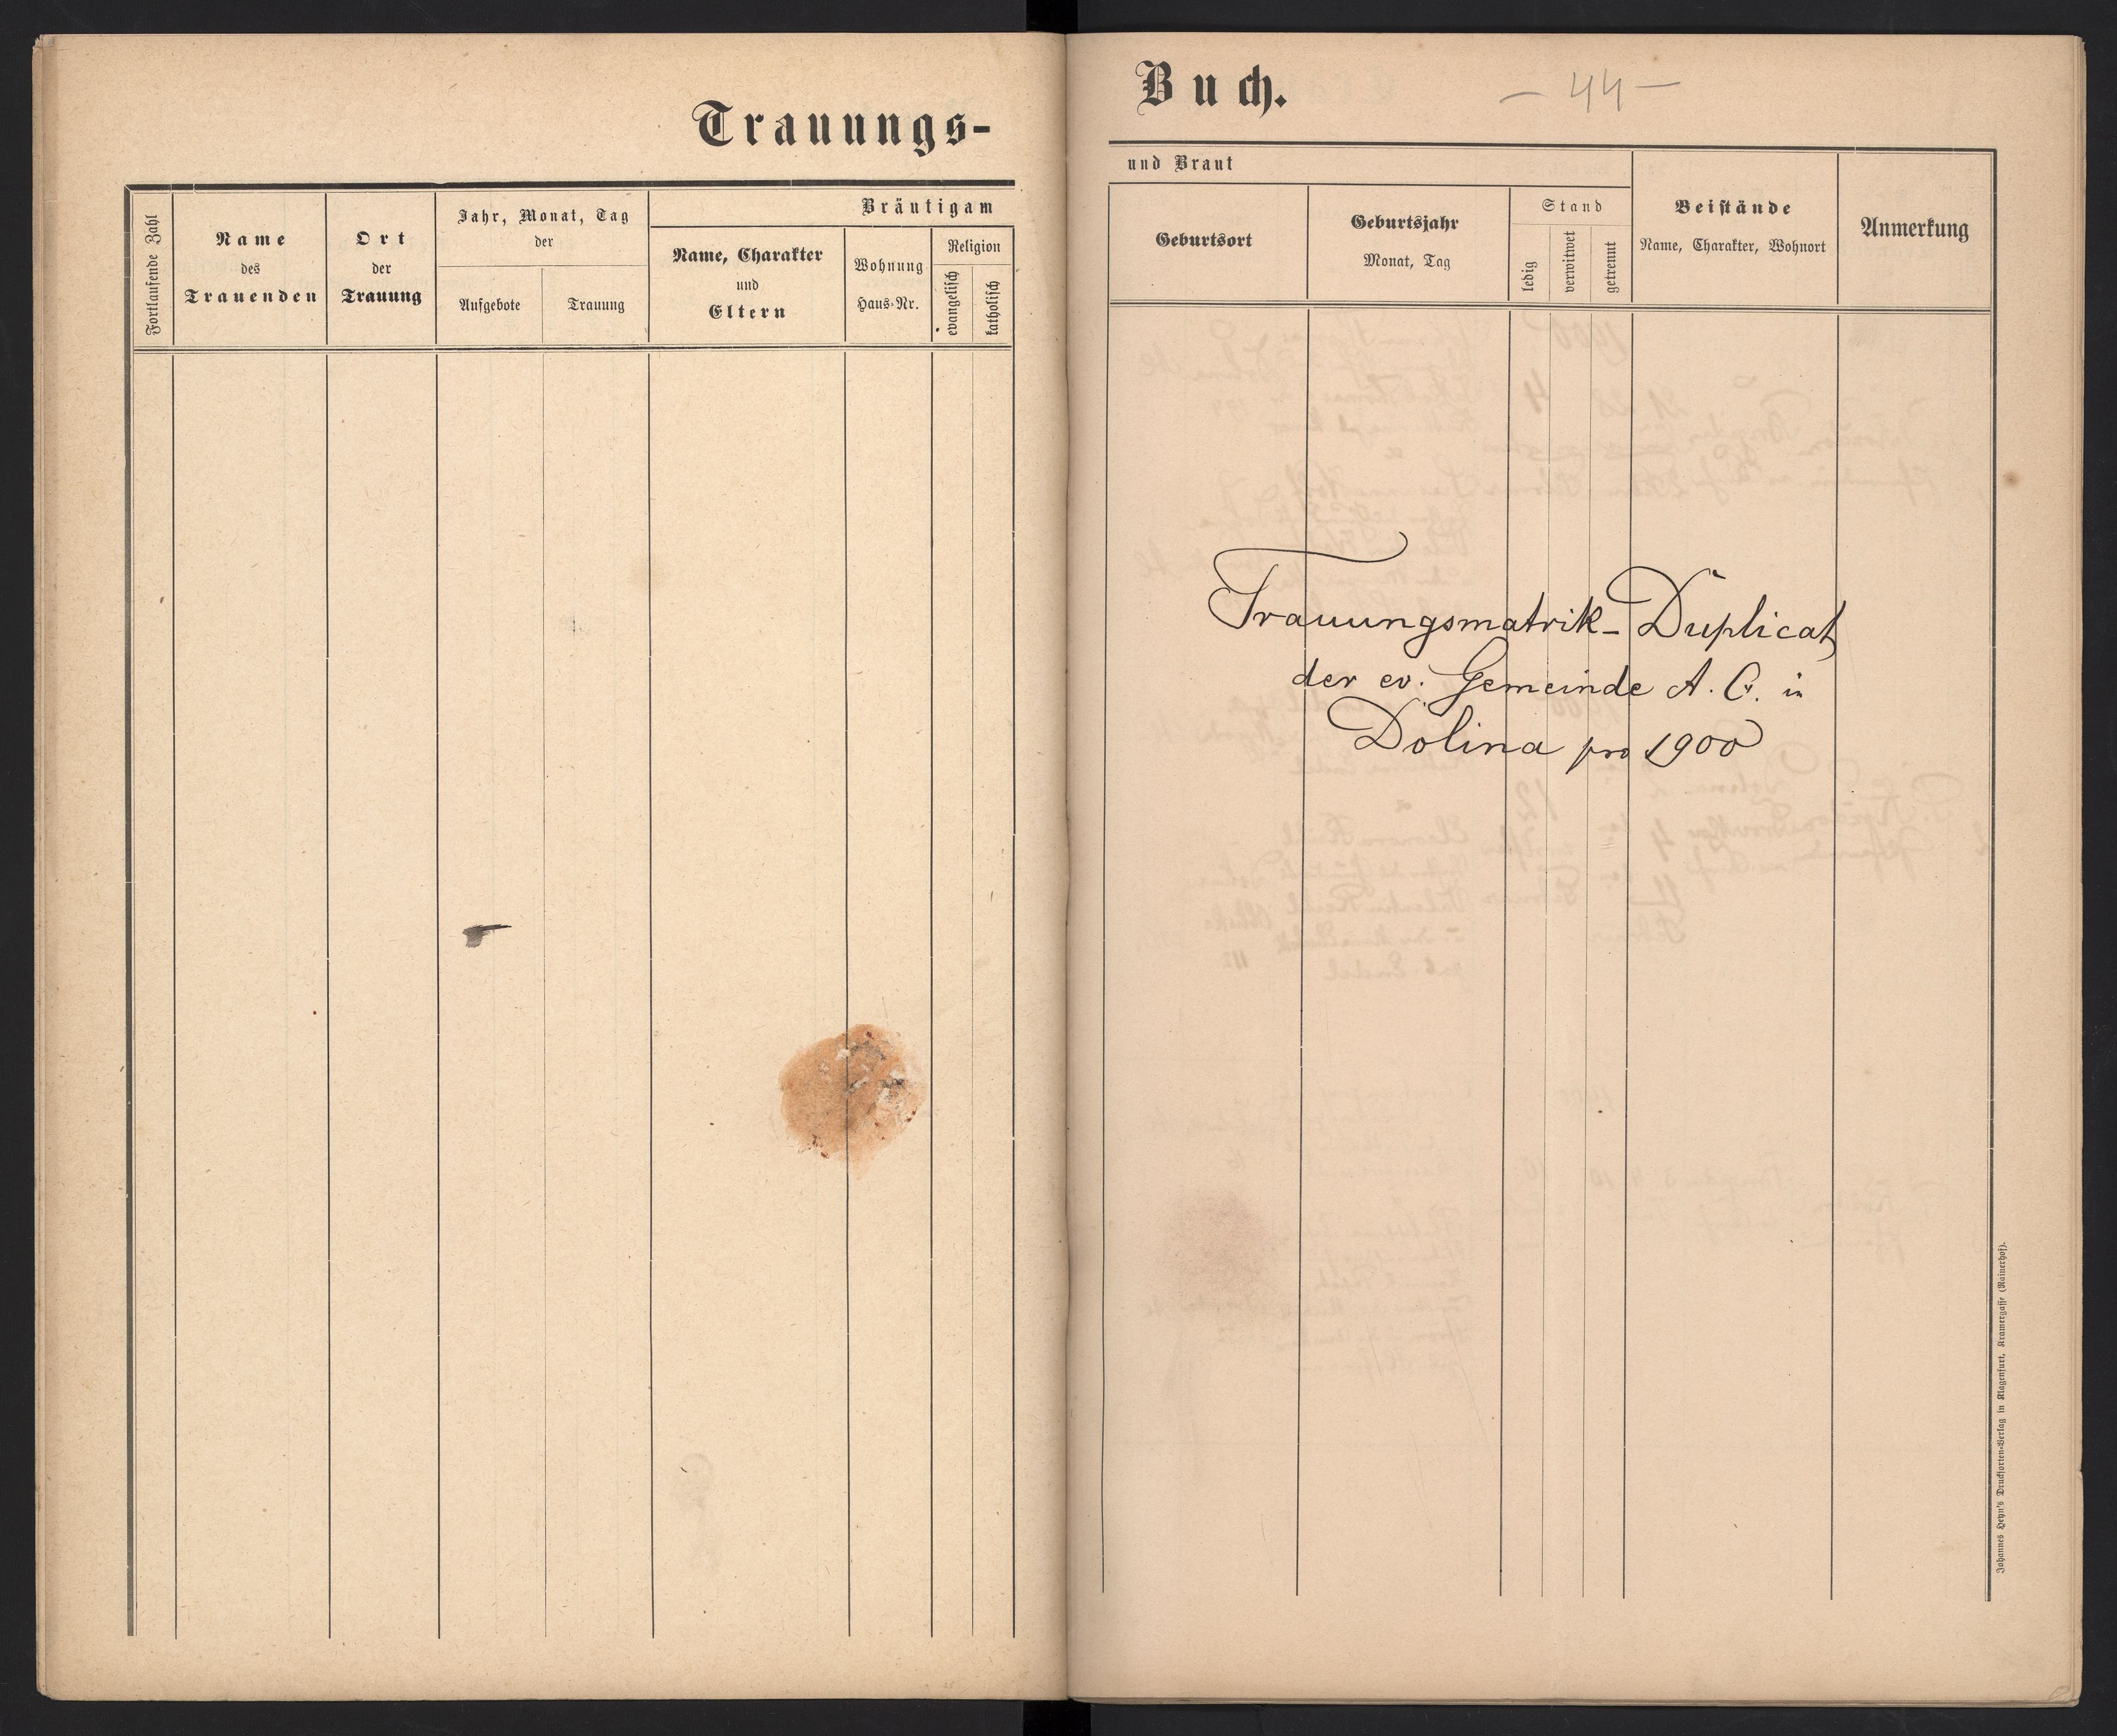 Trauungs-
Fortlaufende Zahl
Name
des
Trauenden
Ort
der
Trauung
Jahr, Monat, Tag
der
Aufgebote
Trauung
Bräutigam
Name, Charakter
und
Eltern
Wohnung
Haus-Nr.
Religion
evangelisch
katholisch
Buch.
- 44 -
und Braut
Geburtsort
Geburtsjahr
Monat, Tag
Stand
ledig
verwitwet
getrennt
Beistände
Name, Charakter, Wohnort
Anmerkung
Trauungsmatrik-Duplicat
der ev. Gemeinde A. C. in
Dolina pro 1900
Johannes Heyn's Drucksorten-Verlag in Klagenfurt, Kramergasse (Rainerhof).